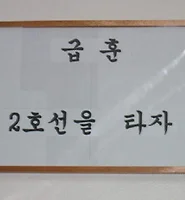 급훈
2호선을 타자